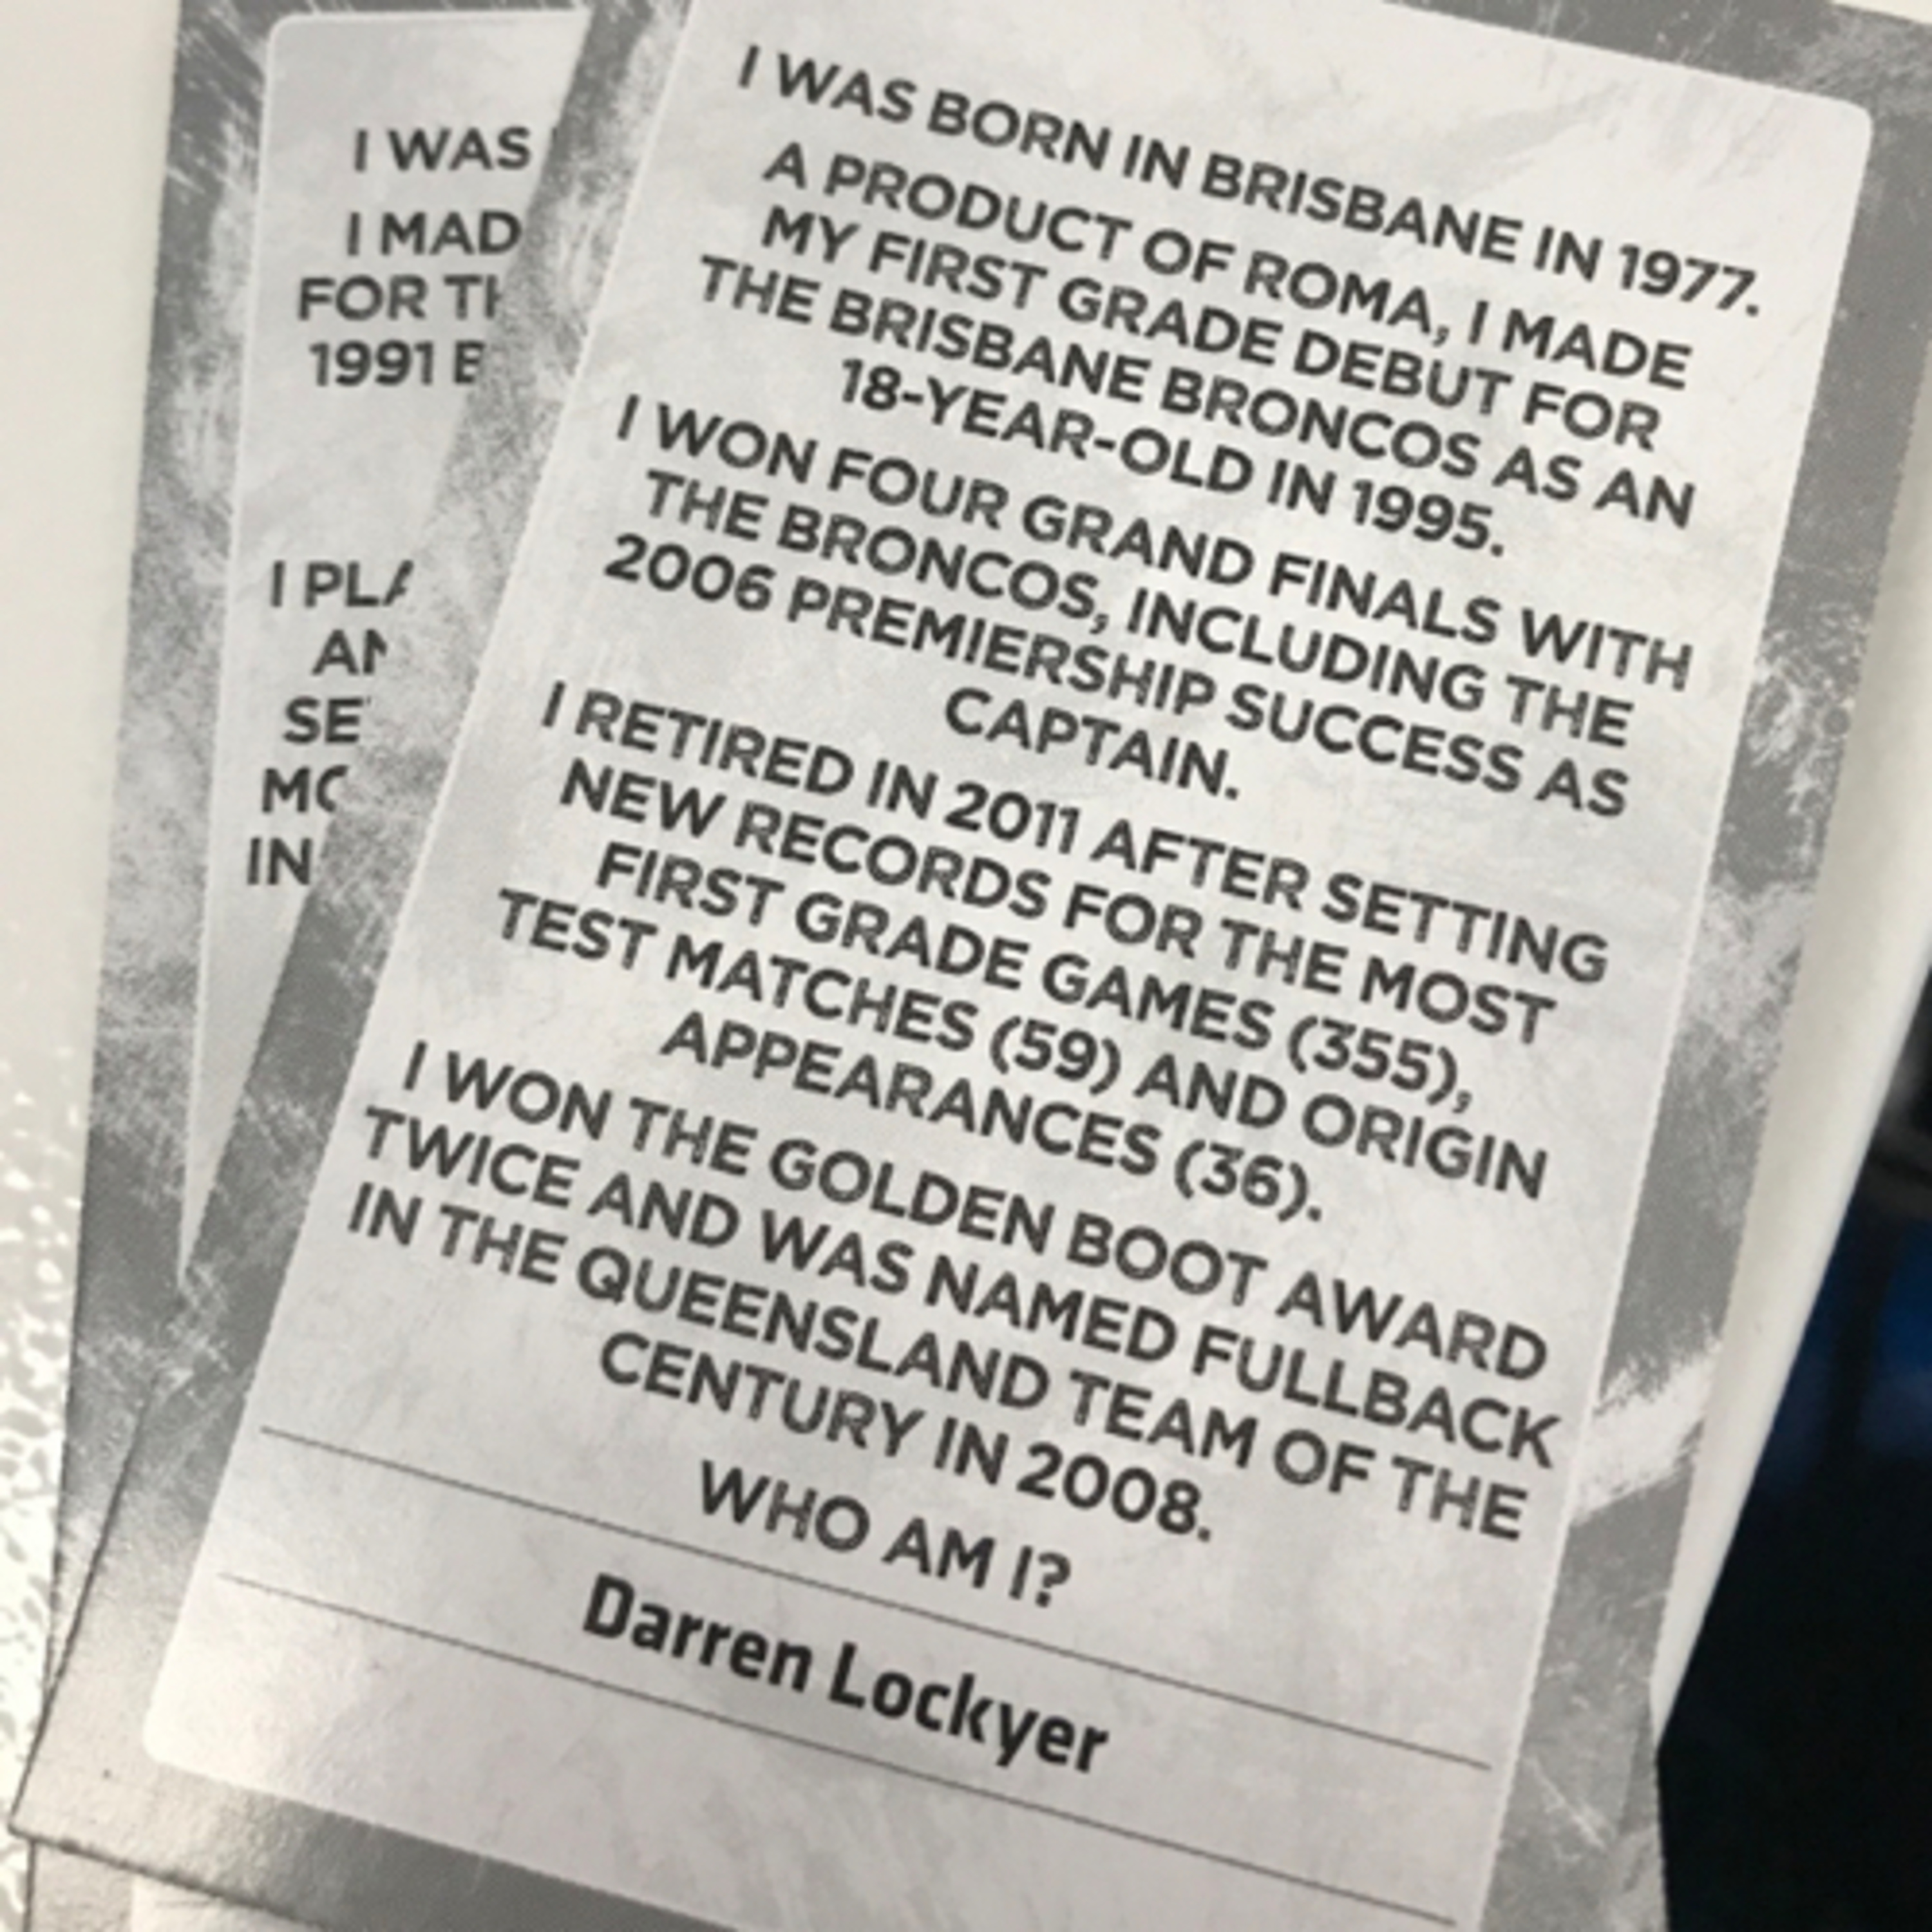 I WAS
I MAD
FOR TH
1991 B
I PLA
AN
SE
MO
IN
I WAS BORN IN BRISBANE IN 1977.
A PRODUCT OF ROMA, I MADE
MY FIRST GRADE DEBUT FOR
THE BRISBANE BRONCOS AS AN
18-YEAR-OLD IN 1995.
I WON FOUR GRAND FINALS WITH
THE BRONCOS, INCLUDING THE
2006 PREMIERSHIP SUCCESS AS
CAPTAIN.
I RETIRED IN 2011 AFTER SETTING
NEW RECORDS FOR THE MOST
FIRST GRADE GAMES (355),
TEST MATCHES (59) AND ORIGIN
APPEARANCES (36).
I WON THE GOLDEN BOOT AWARD
TWICE AND WAS NAMED FULLBACK
IN THE QUEENSLAND TEAM OF THE
CENTURY IN 2008.
WHO AM I?
Darren Lockyer